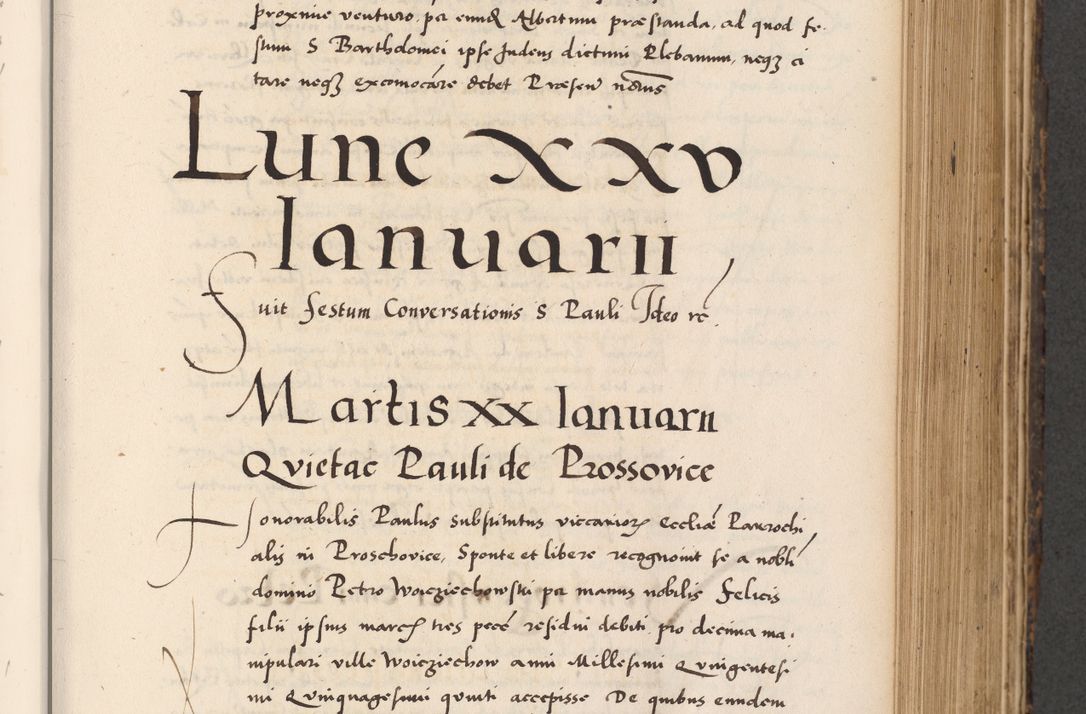 proxime venturo, per eund Albertum præstanda, ad quod fe-
stum S Bartholomei ipse Judeus dictum Plebanum, neqz ci
tare neqz excomocáre debet Præsen
Lune XXV
Ianuarii
Fuit festum Conversationis S Pauli Ideo rc
Martis xx Ianuarii
Qvietac Pauli de Prossovice
Honorabilis Paulus substitutus viccarior eccliæ Parrochi
alis in Proschovice, Sponte et libere recognovit se a nobli
domino Petro Woicziechowski per manus nobilis Felicis
filii ipsius march tres pecé residui debiti pro decima ma-
nipulari ville Woicziechow anni Millesimi Qvingentesi
mi Qvinquagesimi qvinti accepisse De quibus eundem